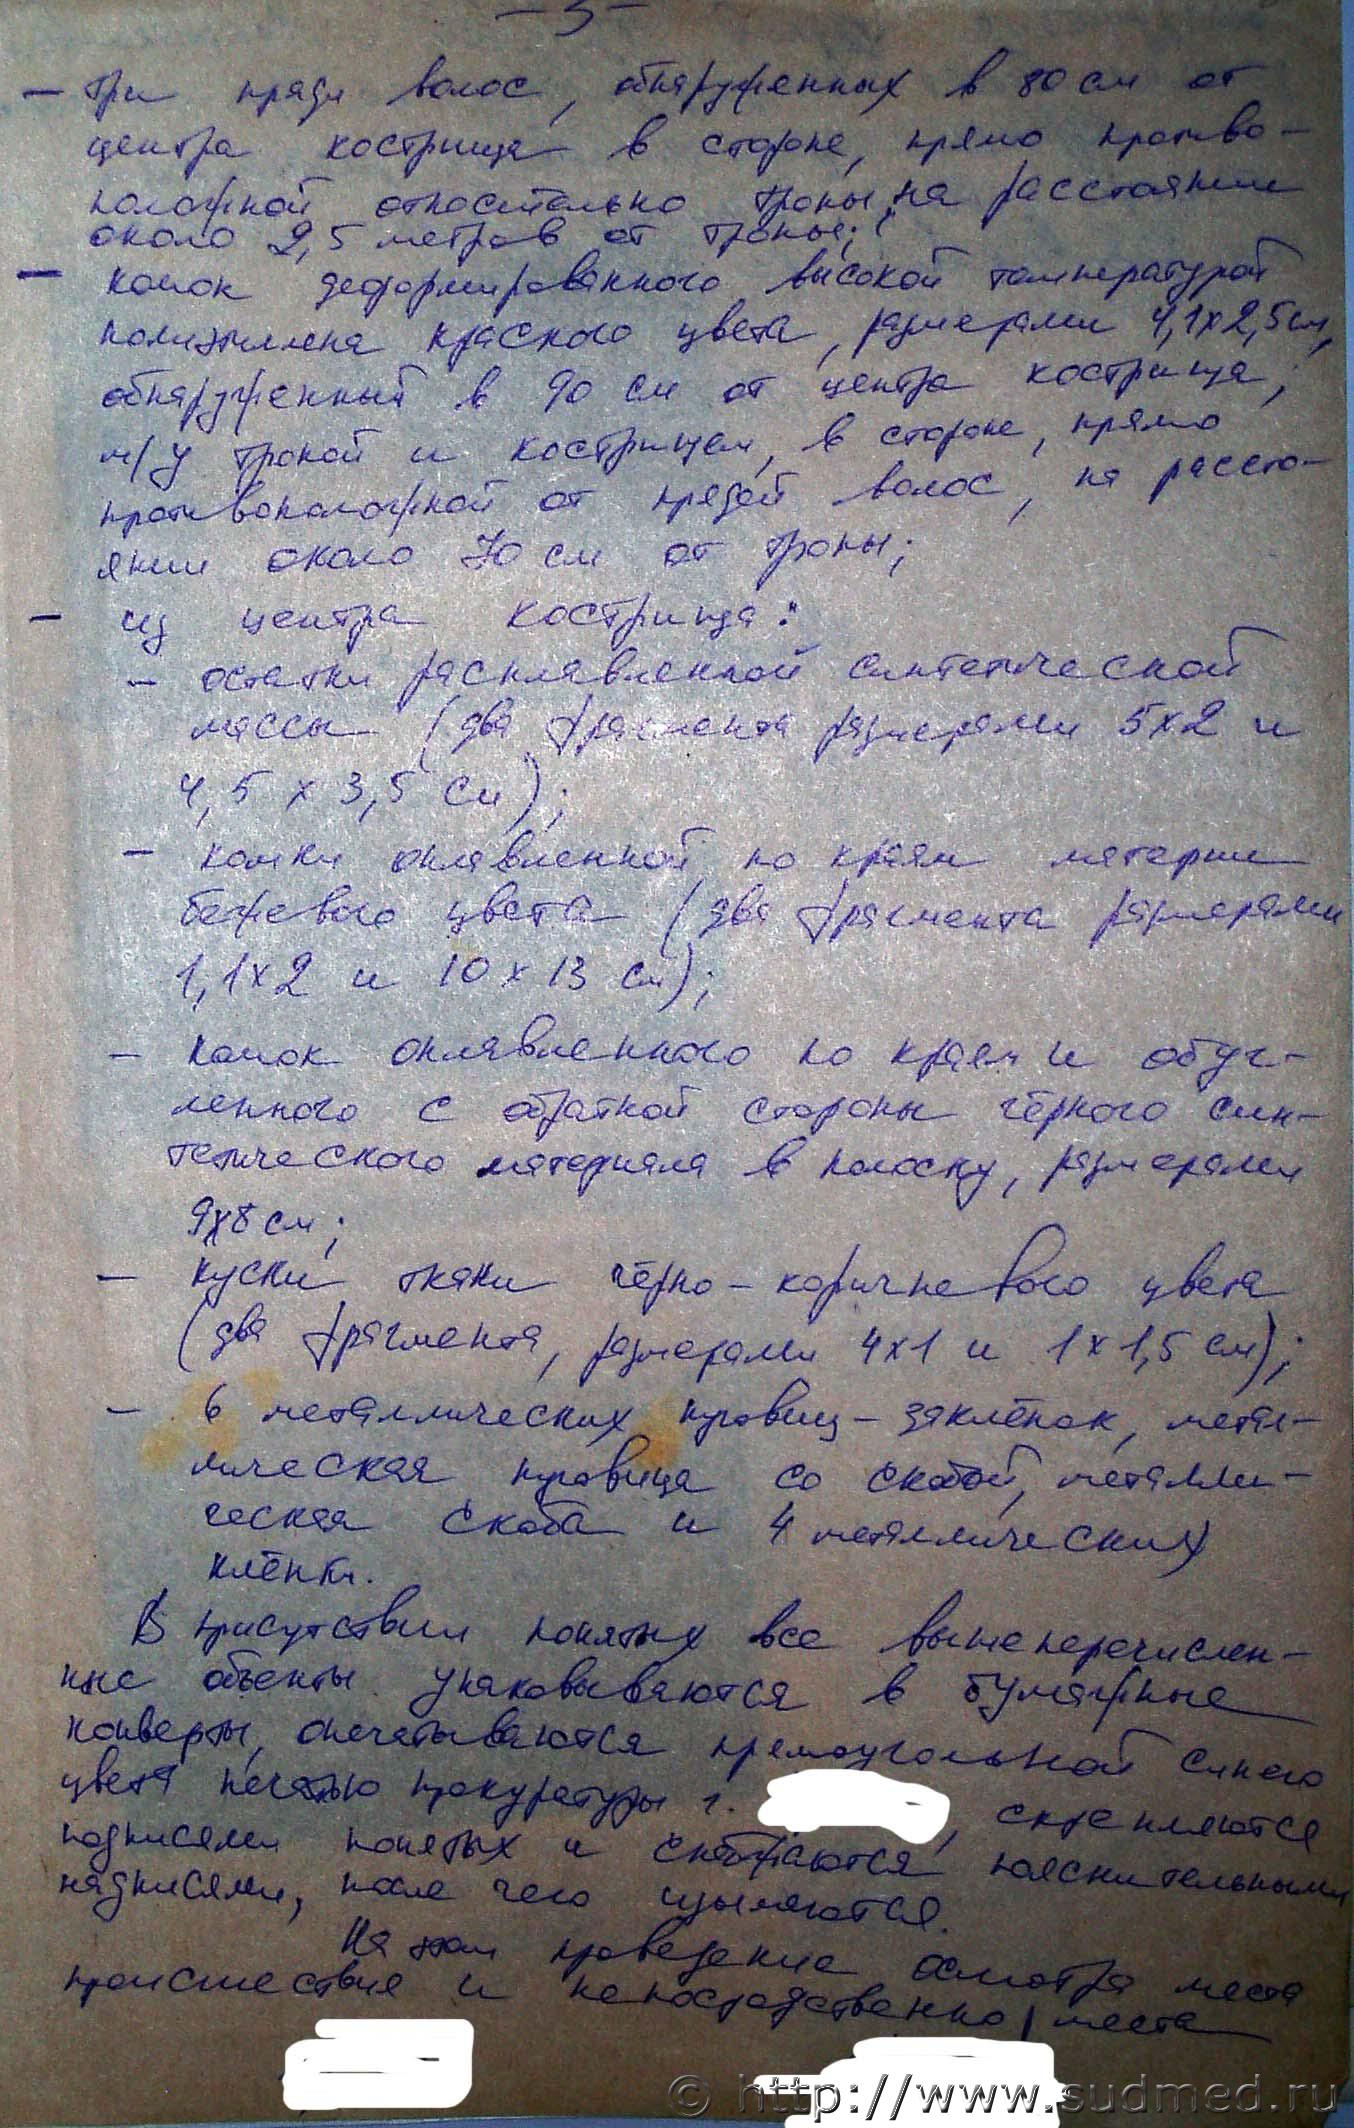 – 5 –
– три пряди волос, обнаруженных в 80 см от
центра кострища в стороне, прямо противо-
положной относительно тропы, на расстоянии
около 2,5 метров от тропы;
– комок деформированного высокой температурой
полиэтилена красного цвета, размерами 4,1х2,5см,
обнаруженный в 90 см от центра кострища,
м/у тропой и кострищем, в стороне, прямо
противоположной от прядей волос, на рассто-
янии около 70 см от тропы;
– из центра кострища:
– остатки расплавленной синтетической
массы (два фрагмента размерами 5х2 и
4,5 х 3,5 см);
– комки оплавленной по краям материи
бежевого цвета (два фрагмента размерами
1,1х2 и 10 х 13 см);
– комок оплавленного по краям и обуг-
ленного с обратной стороны чёрного син-
тетического материала в полоску, размерами
9х8 см;
– куски ткани чёрно-коричневого цвета
(два фрагмента, размерами 4х1 и 1х1,5 см);
– 6 металлических пуговиц-заклёпок, метал-
лическая пуговица со скобой, металли-
ческая скоба и 4 металлических
клёпки.
В присутствии понятых все вышеперечислен-
ные объекты упаковываются в бумажные
конверты, опечатываются прямоугольной синего
цвета печатью прокуратуры г. , скрепляются
подписями понятых и снабжаются пояснительными
надписями, после чего изымаются.
На этом проведение осмотра места
происшествия и непосредственно места
© http://www.sudmed.ru